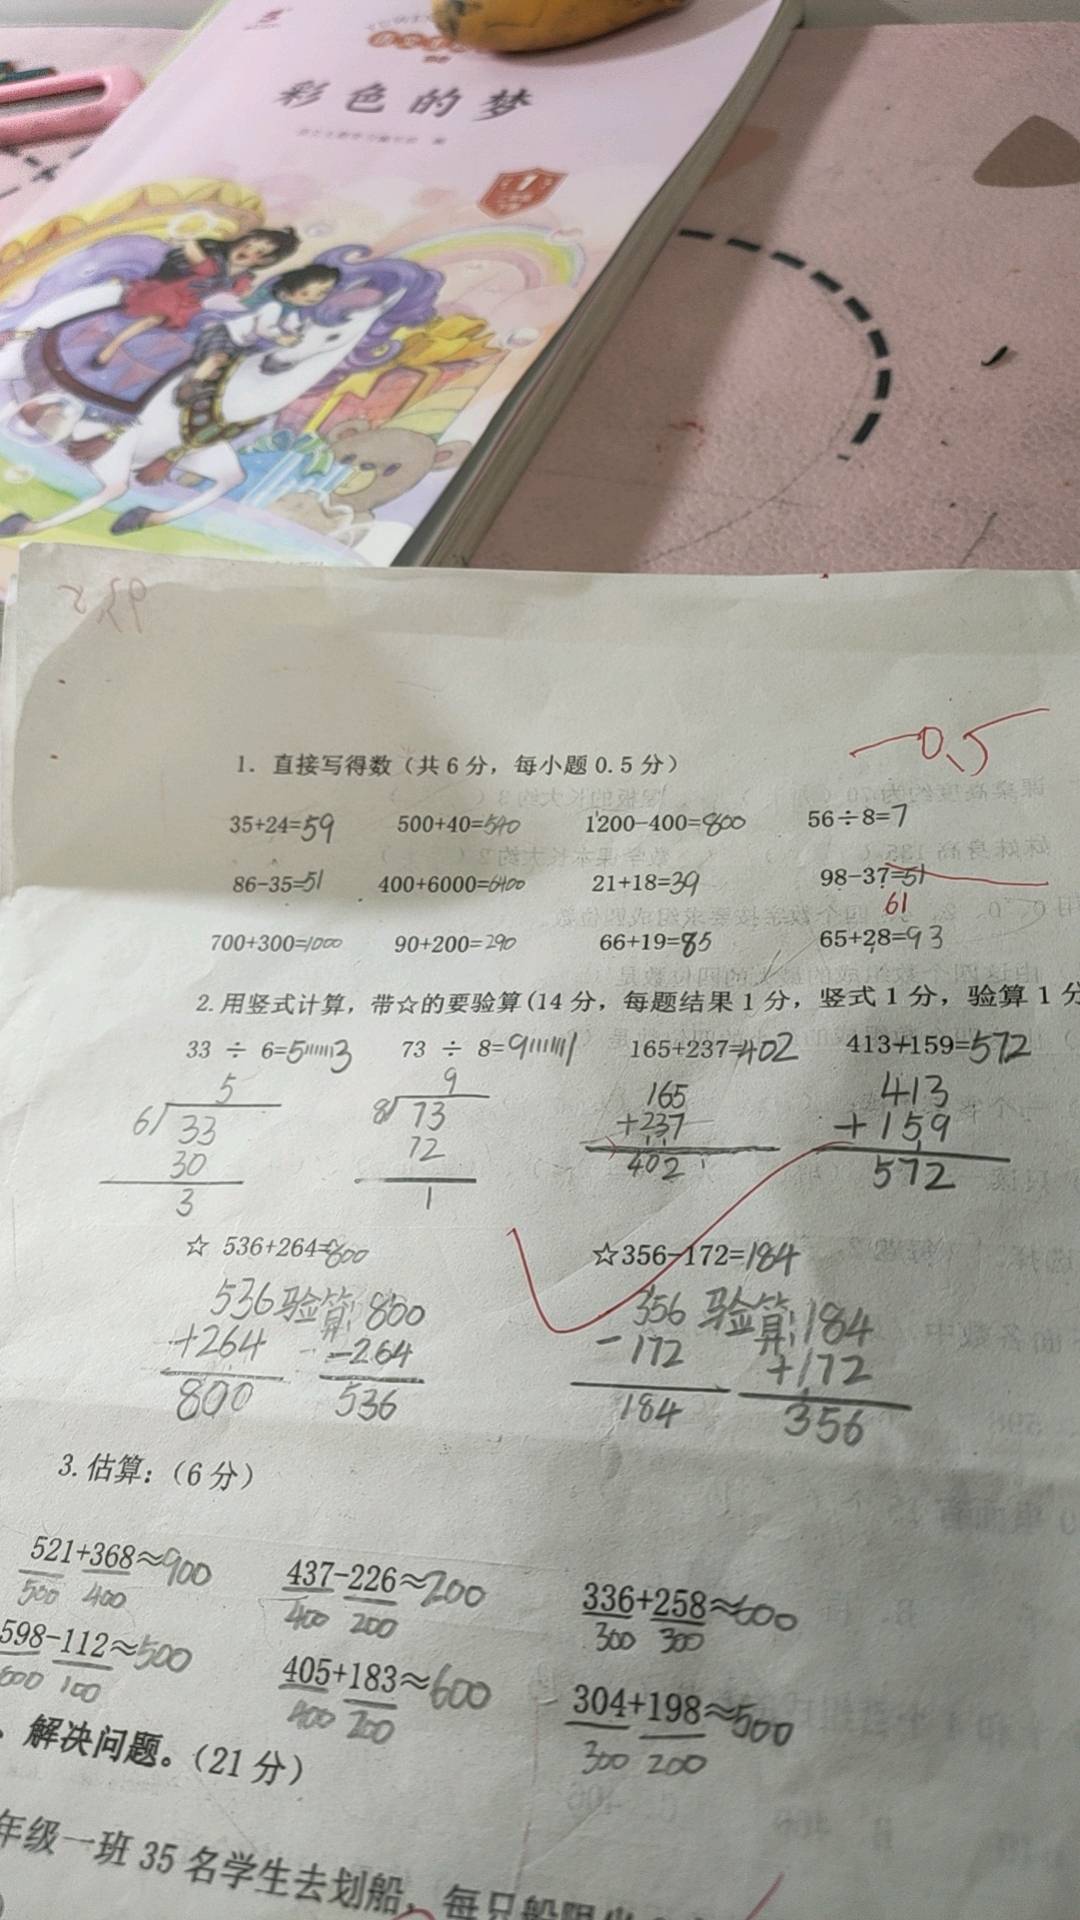 彩色的梦
1
-0.5
1. 直接写得数（共6分，每小题0.5分）
35+24=59 500+40=540 1200-400=800 56÷8=7
86-35=51 400+6000=6400 21+18=39 98-37=51
61
700+300=1000 90+200=290 66+19=85 65+28=93
2.用竖式计算，带☆的要验算(14分，每题结果1分，竖式1分，验算1分
33 ÷ 6=5……3 73 ÷ 8=9……1 165+237=402 413+159=572
5 9 165 413
6 33 8 73 +237 +159
30 72 402 572
3 1
☆ 536+264=800 ☆356-172=184
536 验算: 800 356 验算: 184
+264 -264 -172 +172
800 536 184 356
3.估算：（6分）
521+368≈900 437-226≈200 336+258≈600
500 400 400 200 300 300
598-112≈500 405+183≈600 304+198≈500
600 100 400 200 300 200
解决问题。（21分）
年级一班35名学生去划船，每只船限